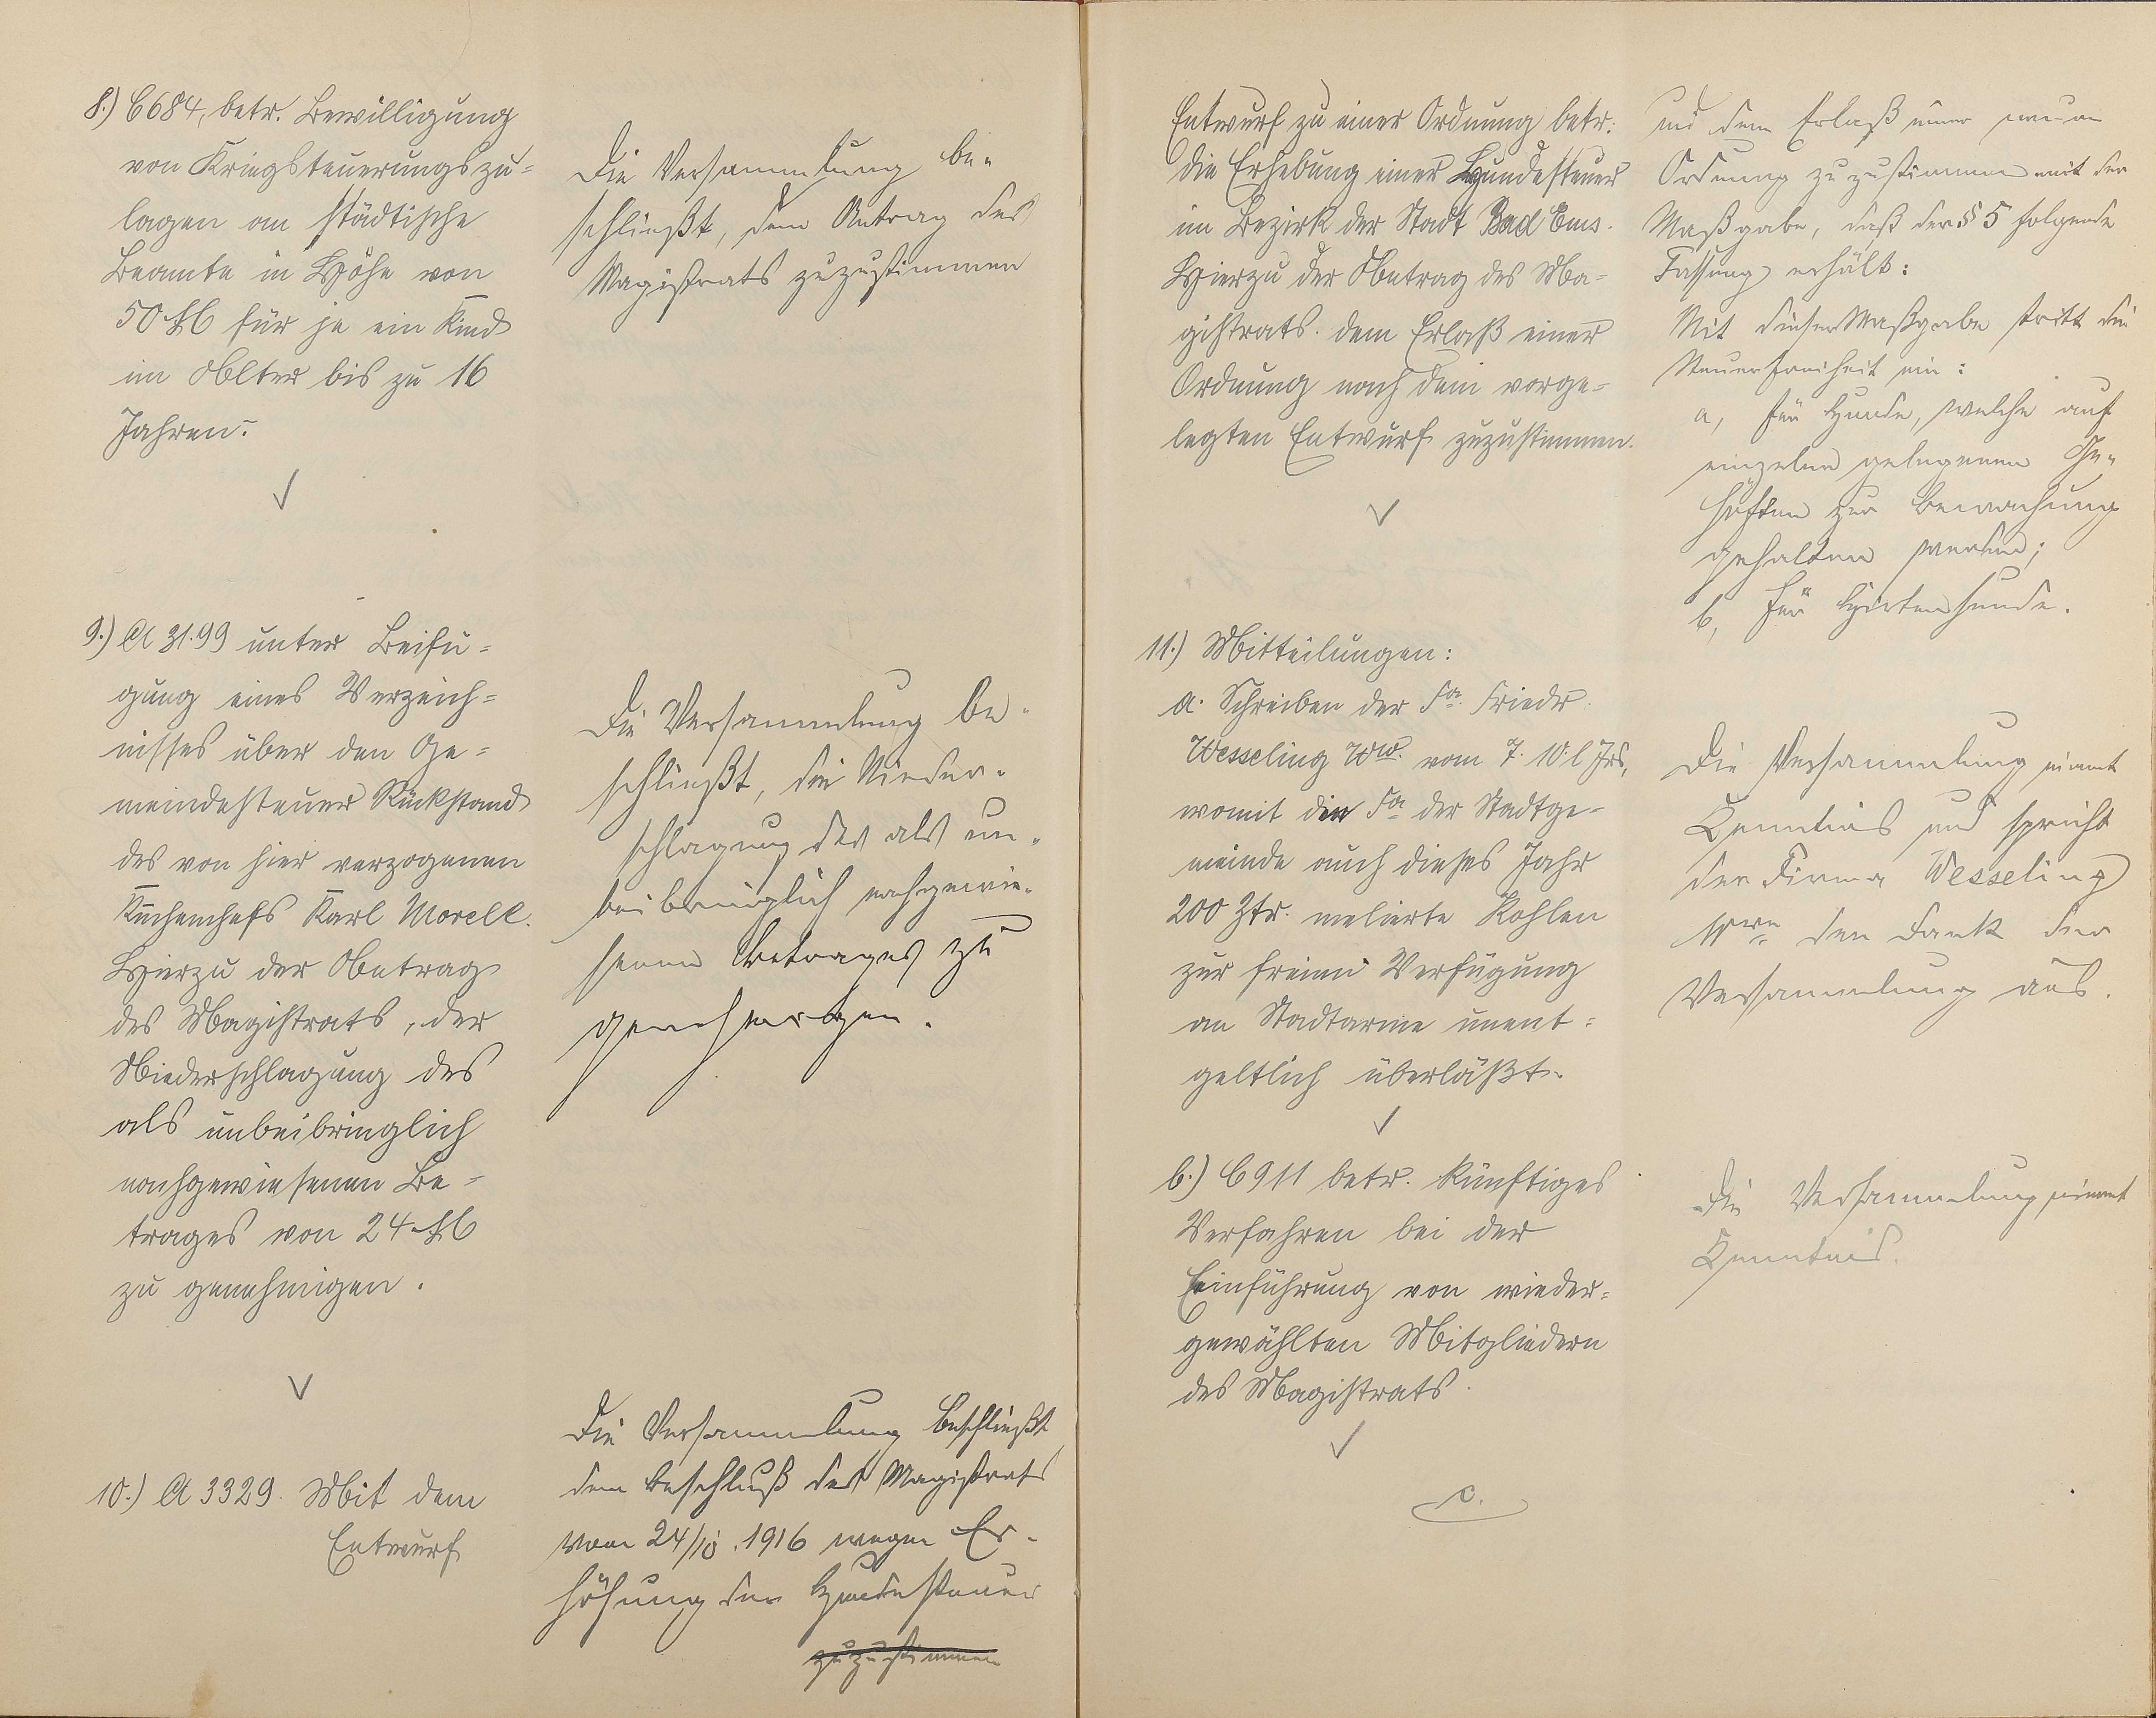 8.) C 684, betr. Bewilligung
von Kriegsteuerungszu-
lagen an städtische
Beamte in Höhe von
50 M für je ein Kind
im Alter bis zu 16
Jahren.
Die Versammlung be-
schließt, dem Antrag des
Magistrats zuzustimmen
9.) A 31.99 unter Beifü-
gung eines Verzeich-
nisses über den Ge-
meindesteuer Rückstand
des von hier verzogenen
Küchenchefs Karl Morell.
Hierzu der Antrag
des Magistrats, der
Niederschlagung des
als unbeibringlich
nachgewiesenen Be-
trages von 24 M
zu genehmigen.
Die Versammlung be-
schließt, die Nieder-
schlagung des als un-
beibringlich nachgewie-
senen Betrages zu
genehmigen.
10.) A 3329. Mit dem
Entwurf
Die Versammlung beschließt
dem Beschluß des Magistrats
vom 24/10.1916 wegen Er-
höhung der Hundesteuer
zuzustimmen
Entwurf zu einer Ordnung betr.
die Erhebung einer Hundesteuer
im Bezirk der Stadt Bad Ems.
Hierzu der Antrag des Ma-
gistrats. dem Erlaß einer
Ordnung nach dem vorge-
legten Entwurf zuzustimmen.
und dem Erlaß einer neuen
Ordnung zuzustimmen mit der
Maßgabe, daß der § 5 folgende
Fassung erhält:
Mit dieser Maßgabe tritt die
Steuerfreiheit ein:
a, für Hunde, welche auf
einzelne gelegenen Ge-
höften zur Bewachung
gehalten werden;
b, für Hirtenhunde.
11.) Mitteilungen:
a. Schreiben der Fa. Friedr.
Wesseling Ww. vom 7. 10. l Jrs,
womit die Fa der Stadtge-
meinde auch dieses Jahr
200 Ztr. melierte Kohlen
zur freien Verfügung
an Stadtarme unent-
geltlich überläßt.
Die Versammlung nimmt
Kenntnis und spricht
der Firma Wesseling
Wwe den Dank der
Versammlung aus.
b.) C 911 betr. künftiges
Verfahren bei der
Einführung von wieder-
gewählten Mitgliedern
des Magistrats.
Die Versammlung nimmt
Kenntnis.
c.